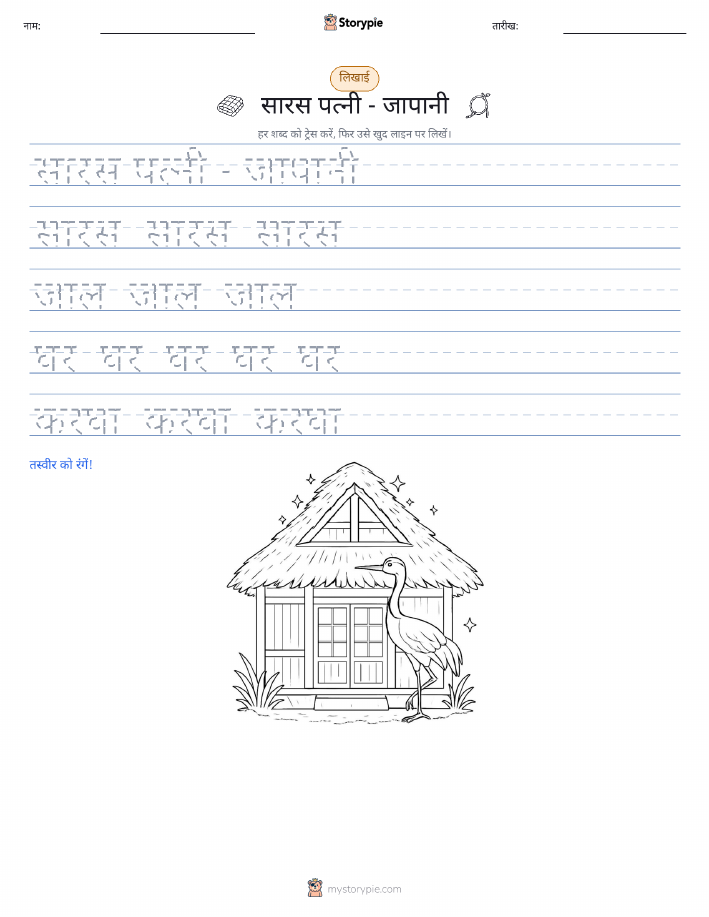 नाम:
Storypie
तारीख:
लिखाई
सारस पत्नी - जापानी
हर शब्द को ट्रेस करें, फिर उसे खुद लाइन पर लिखें।
सारस पत्नी - जापानी
सारस सारस सारस
जाल जाल जाल
घर घर घर घर घर
करघा करघा करघा
तस्वीर को रंगें!
mystorypie.com